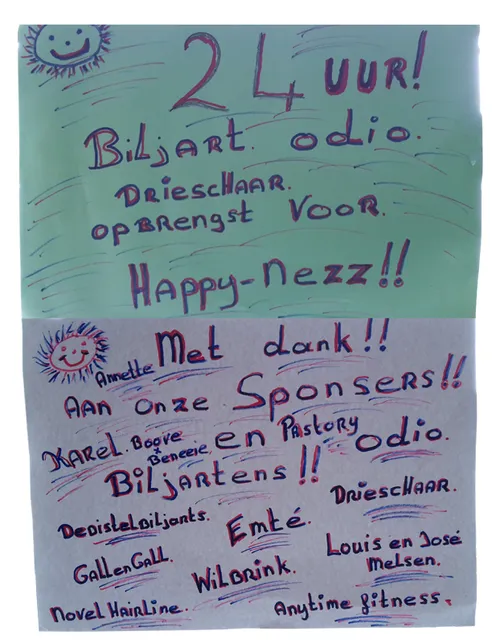 24 UUR!
BiLjART. odio.
DRiescHAAR.
opBRengst VooR.
HAppy-nezz!!
Met dank!!
Annette
AAn onze Sponsers!!
KAReL. Boove x Beneeie. en PAstoRy odio.
BiLjartens!!
DRiescHAAR.
DedistelBiljarts.
Emté.
Louis en José
meLsen.
GALLenGALL.
WiLBRink.
Novel HAiRLine.
Anytime fitness.